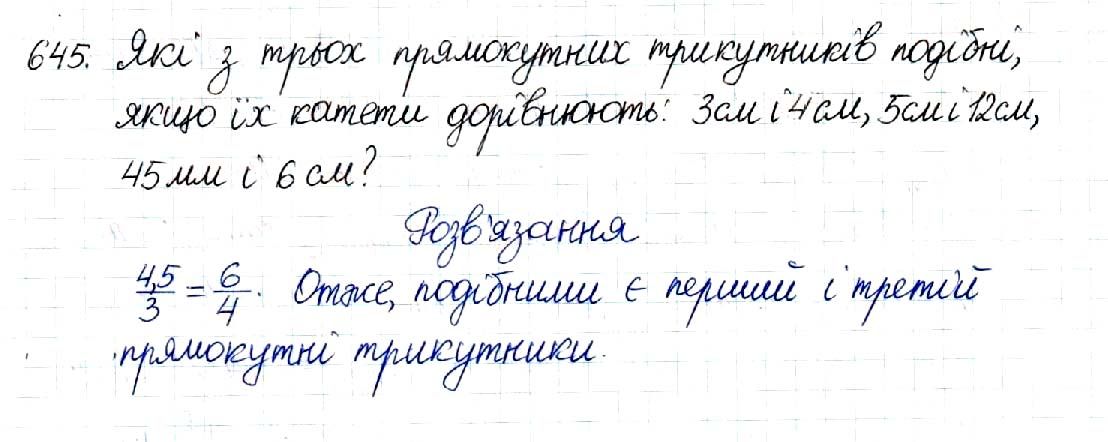 645. Які з трьох прямокутних трикутників подібні,
якщо їх катети дорівнюють: 3см і 4см, 5см і 12см,
45мм і 6см?
Розв'язання
4,5/3 = 6/4. Отже, подібними є перший і третій
прямокутні трикутники.